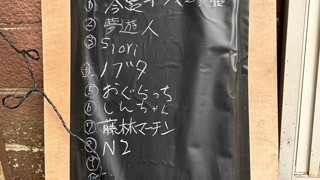 ②夢遊人
③Siori
④ノブタ
⑤おぐらっち
⑥しんちゃん
⑦藤林マーチン
⑧N2
⑨